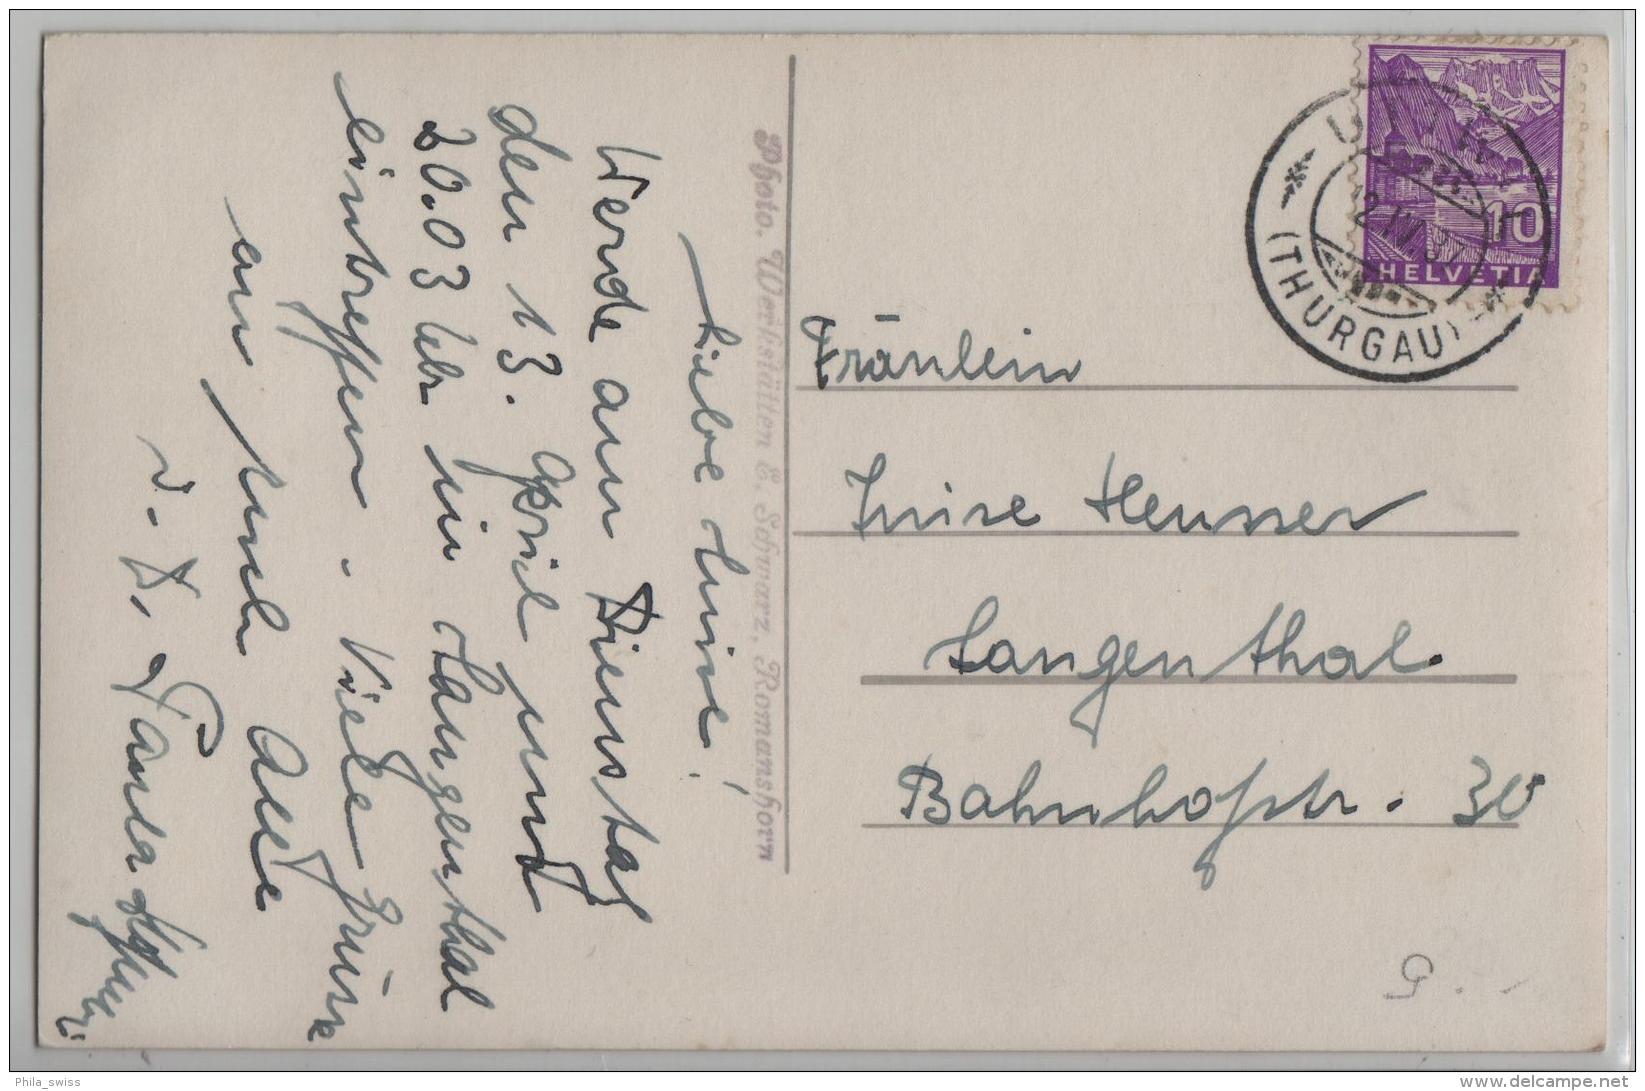 Liebe Luise!
Werde am Dienstag
den 13. April und
20.03 Uhr in Langenthal
eintreffen. Viele Grüsse
an Euch Alle
v. D. Paula
Photo. Werkstätten E. Schwarz, Romanshorn
UTTWIL
12.IV.37
(THURGAU)
10
HELVETIA
Fräulein
Luise Heusser
Langenthal.
Bahnhofstr. 30
Phila_swiss
www.delcampe.net